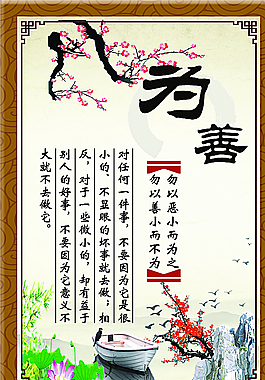 为善
【勿以恶小而为之
勿以善小而不为】
对任何一件事，不要因为它是很
小的、不显眼的坏事就去做；相
反，对于一些微小的，却有益于
别人的好事，不要因为它意义不
大就不去做它。